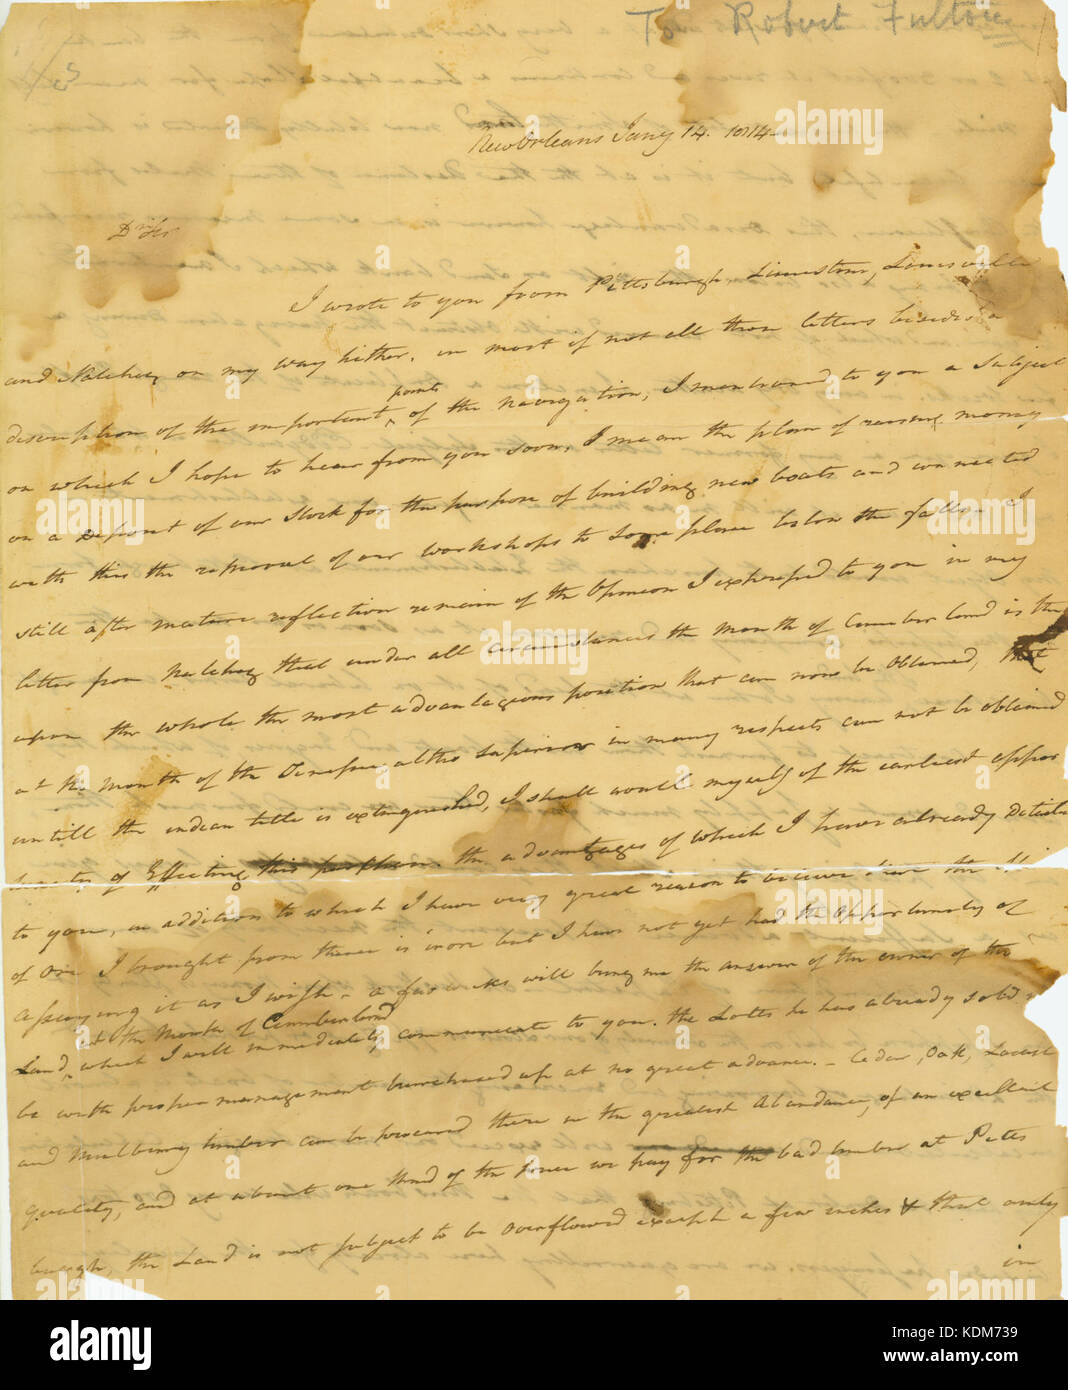 To Robert Fulton
New Orleans Jany 14. 1814
Dr Sir
I wrote to you from Pittsburgh, Limestone, Louisville
and Natchez on my way hither, in most if not all those letters besides a
points
description of the important ^ of the navigation, I mentioned to you a Subject
on which I hope to hear from you soon, I mean the plan of raising money
on a deposit of our Stock for the purpose of building new boats and connected
with this the removal of our workshops to some place below the falls. I
still after mature reflection remain of the Opinion I expressed to you in my
letter from Natchez that under all circumstances the Mouth of Cumberland is the
upon the whole the most advantageous position that can now be obtained, that
at the Mouth of the Tenessee altho superior in many respects can not be obtained
untill the indian title is extinguished, I shall avail myself of the earliest oppor
tunity of Effecting this purchase the advantages of which I have already detailed
to you, in addition to which I have very great reason to believe the
of Ore I brought from thence is iron but I have not yet had the Opportunity of
assaying it as I wish - a few weeks will bring me the answer of the owner of the
at the Mouth of Cumberland
Land, ^ which I will immediately communicate to you. the Lotts he has already sold
be with proper management purchased up at no great advance. - Cedar, Oak, Locust
and Mulberry timber can be procured there in the greatest Abundance, of an excellent
quality, and at about one third of the price we pay for the bad timber at Pitts
burgh, the Land is not subject to be Overflowed except a few inches & that only
in
alamy
Image ID: KDM739
www.alamy.com